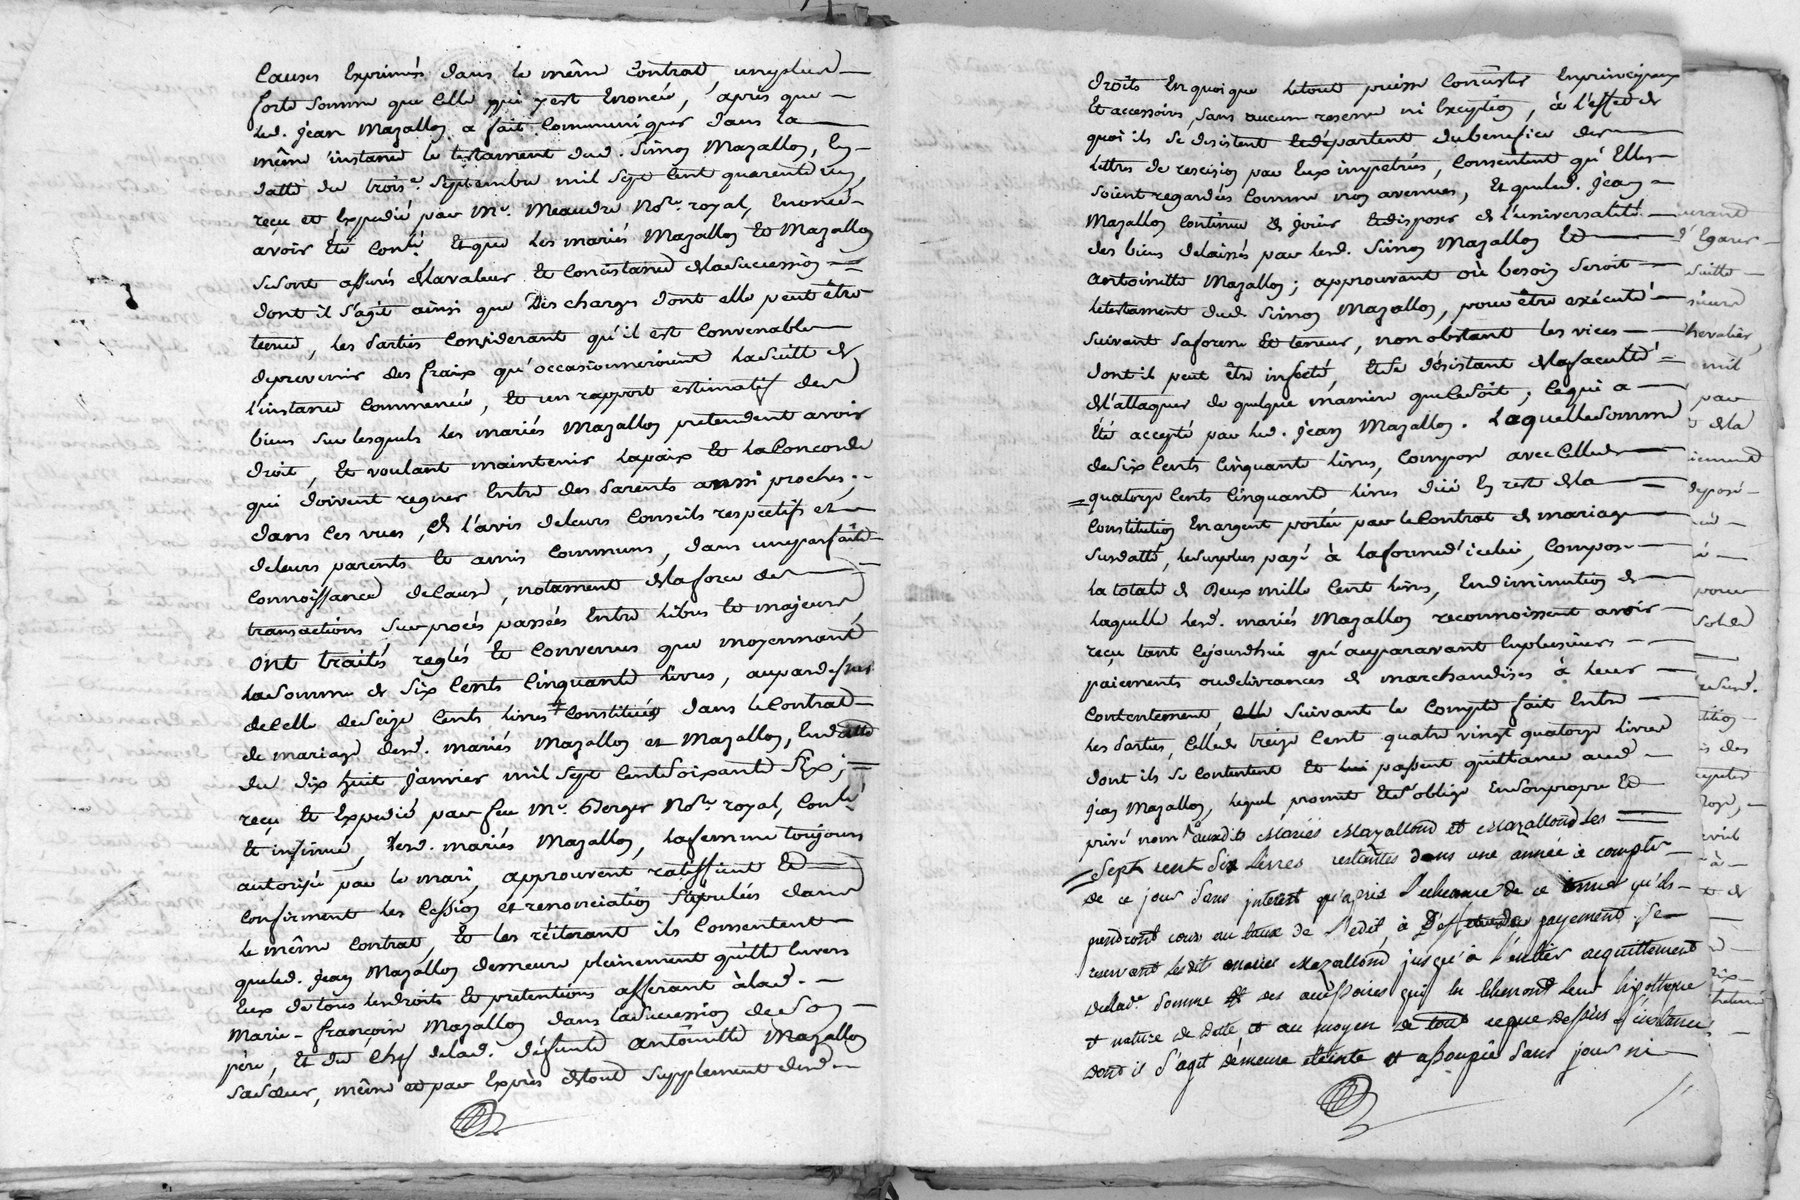 causes exprimés dans le même contrat, une plus
forte somme que celle qui y est enoncée, après que
led. jean Mazallon a fait communiquer dans la
même instance le testament dud. Simon Mazallon, en
datte du trois.e septembre mil sept cent quarente
reçu et expedié par M.e Meaudre No.re royal, enoncé
avoir été con.lé et que les mariés Mazallon et Mazallon
se sont assurés de la valeur et concistance de la succession
dont il s'agit ainsi que des charges dont elle peut être
tenue, les parties considerant qu'il est convenable
de prevenir des fraix qu'occasionneroient la suitte de
l'instance commencée, et un rapport estimatif des
biens sur lesquels les mariés Mazallon pretendent avoir
droit, et voulant maintenir la paix et la concorde
qui doivent regner entre des parents aussi proches;
dans ces vues, de l'avis de leurs conseils respectifs et
de leurs parents et amis communs, dans une parfaite
connoissance de cause, notament de la force des
transactions sur procés passées entre libres et majeurs,
ont traités reglés et convenus que moyennant
la somme de six cents cinquante livres, au par dessus
de celle de seize cents livres constituée dans le contrat
de mariage desd. mariés Mazallon et Mazallon, en datte
du dix huit janvier mil sept cent soixante six;
reçu et expedié par feu M.e Berger No.re royal, con.lé
et insinué, lesd. mariés Mazallon, la femme toujours
autorisée par le mari, approuvent ratiffient et
confirment les cession et renonciation stipulés dans
le même contrat, et les réiterant ils consentent
que led. jean Mazallon demeure pleinement quitte envers
eux de tous les droits et pretentions afferant à lad.
Marie-françoise Mazallon dans la succession de son
père, et du chef de lad. défunte antoinette Mazallon
sa sœur, même et par exprès de tout supplement desd.
droits en quoi que le tout puisse concister en principaux
et accessoires, sans aucune reserve ni exception, à l'effet de
quoi ils se desistent et départent du benefice des
lettres de rescision par eux impetrées, consentent qu'elles
soient regardées comme non avenues, et que led. jean
Mazallon continue de jouir et disposer de l'universalité
des biens delaissés par lesd. Simon Mazallon et
antoinette Mazallon; approuvant où besoin seroit
le testament dud. Simon Mazallon, pour être exécuté
suivant sa forme et teneur, nonobstant les vices
dont il peut être infecté, et se désistant de la faculté
de l'attaquer de quelque maniere que ce soit; ce qui a
été accepté par led. jean Mazallon. Laquelle somme
de six cents cinquante livres, compose avec celle de
quatorze cents cinquante livres düe en reste de la
constitution en argent portée par le contrat de mariage
susdatté, le surplus payé à la forme d'icelui, compose
la totale de deux mille cent livres, en diminution de
laquelle lesd. mariés Mazallon reconnoissent avoir
reçu tant cejourdhui qu'auparavant en plusieurs
paiements ou delivrances de marchandises à leur
contentement, suivant le compte fait entre
les parties, celle de treize cent quatre vingt quatorze livres
dont ils se contentent et lui passent quittance aud.
jean Mazallon, lequel promet et s'oblige en son propre et
privé nom auxdits mariés Mazallond et Mazallond les
sept cent six livres restantes dans une année à compter
de ce jour sans interest qu'après l'echeance de ce terme qu'ils
prendront cours au taux de l'edit, à deffaut de payement se
reservant lesdit mariés Mazallond jusqu'a l'entier acquittement
de lad.e somme et ses accessoires qui en seront leur hipotheque
et nature de dette et au moyen de tout ce que dessus l'instance
dont il s'agit demeure éteinte et assoupie sans jour ni